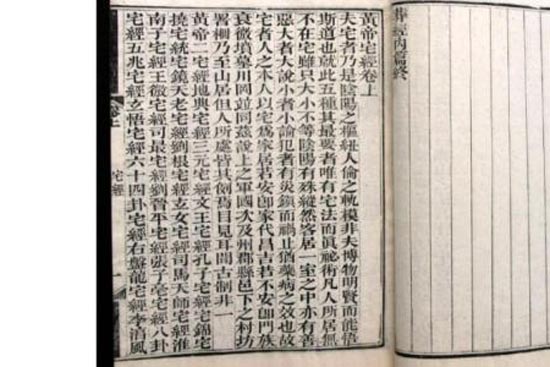 葬經內篇終
黃帝宅經卷上
夫宅者乃是陰陽之樞紐人倫之軌模非夫博物明賢而能悟
斯道也就此五種其最要者唯有宅法而眞祕術凡人所居無
不在宅雖只大小不等陰陽有殊縱然客居一室之中亦有善
惡大者大說小者小論犯者有災鎮而禍止猶藥病之效也故
宅者人之本人以宅爲家居若安卽家代昌吉若不安卽門族
衰微墳墓川岡竝同茲說上之軍國次及州郡縣邑下之村坊
署柵乃至山居但人所處皆其例焉目見耳聞古制非一
黃帝二宅經地典宅經三元宅經文王宅經孔子宅經宅錦宅
撓宅統宅鏡天老宅經劉根宅經玄女宅經司馬天師宅經淮
南子宅經王微宅經司最宅經劉晉平宅經張子毫宅經八卦
宅經五兆宅經玄悟宅經六十四卦宅經右盤龍宅經李淳風
卷上
宅經
一